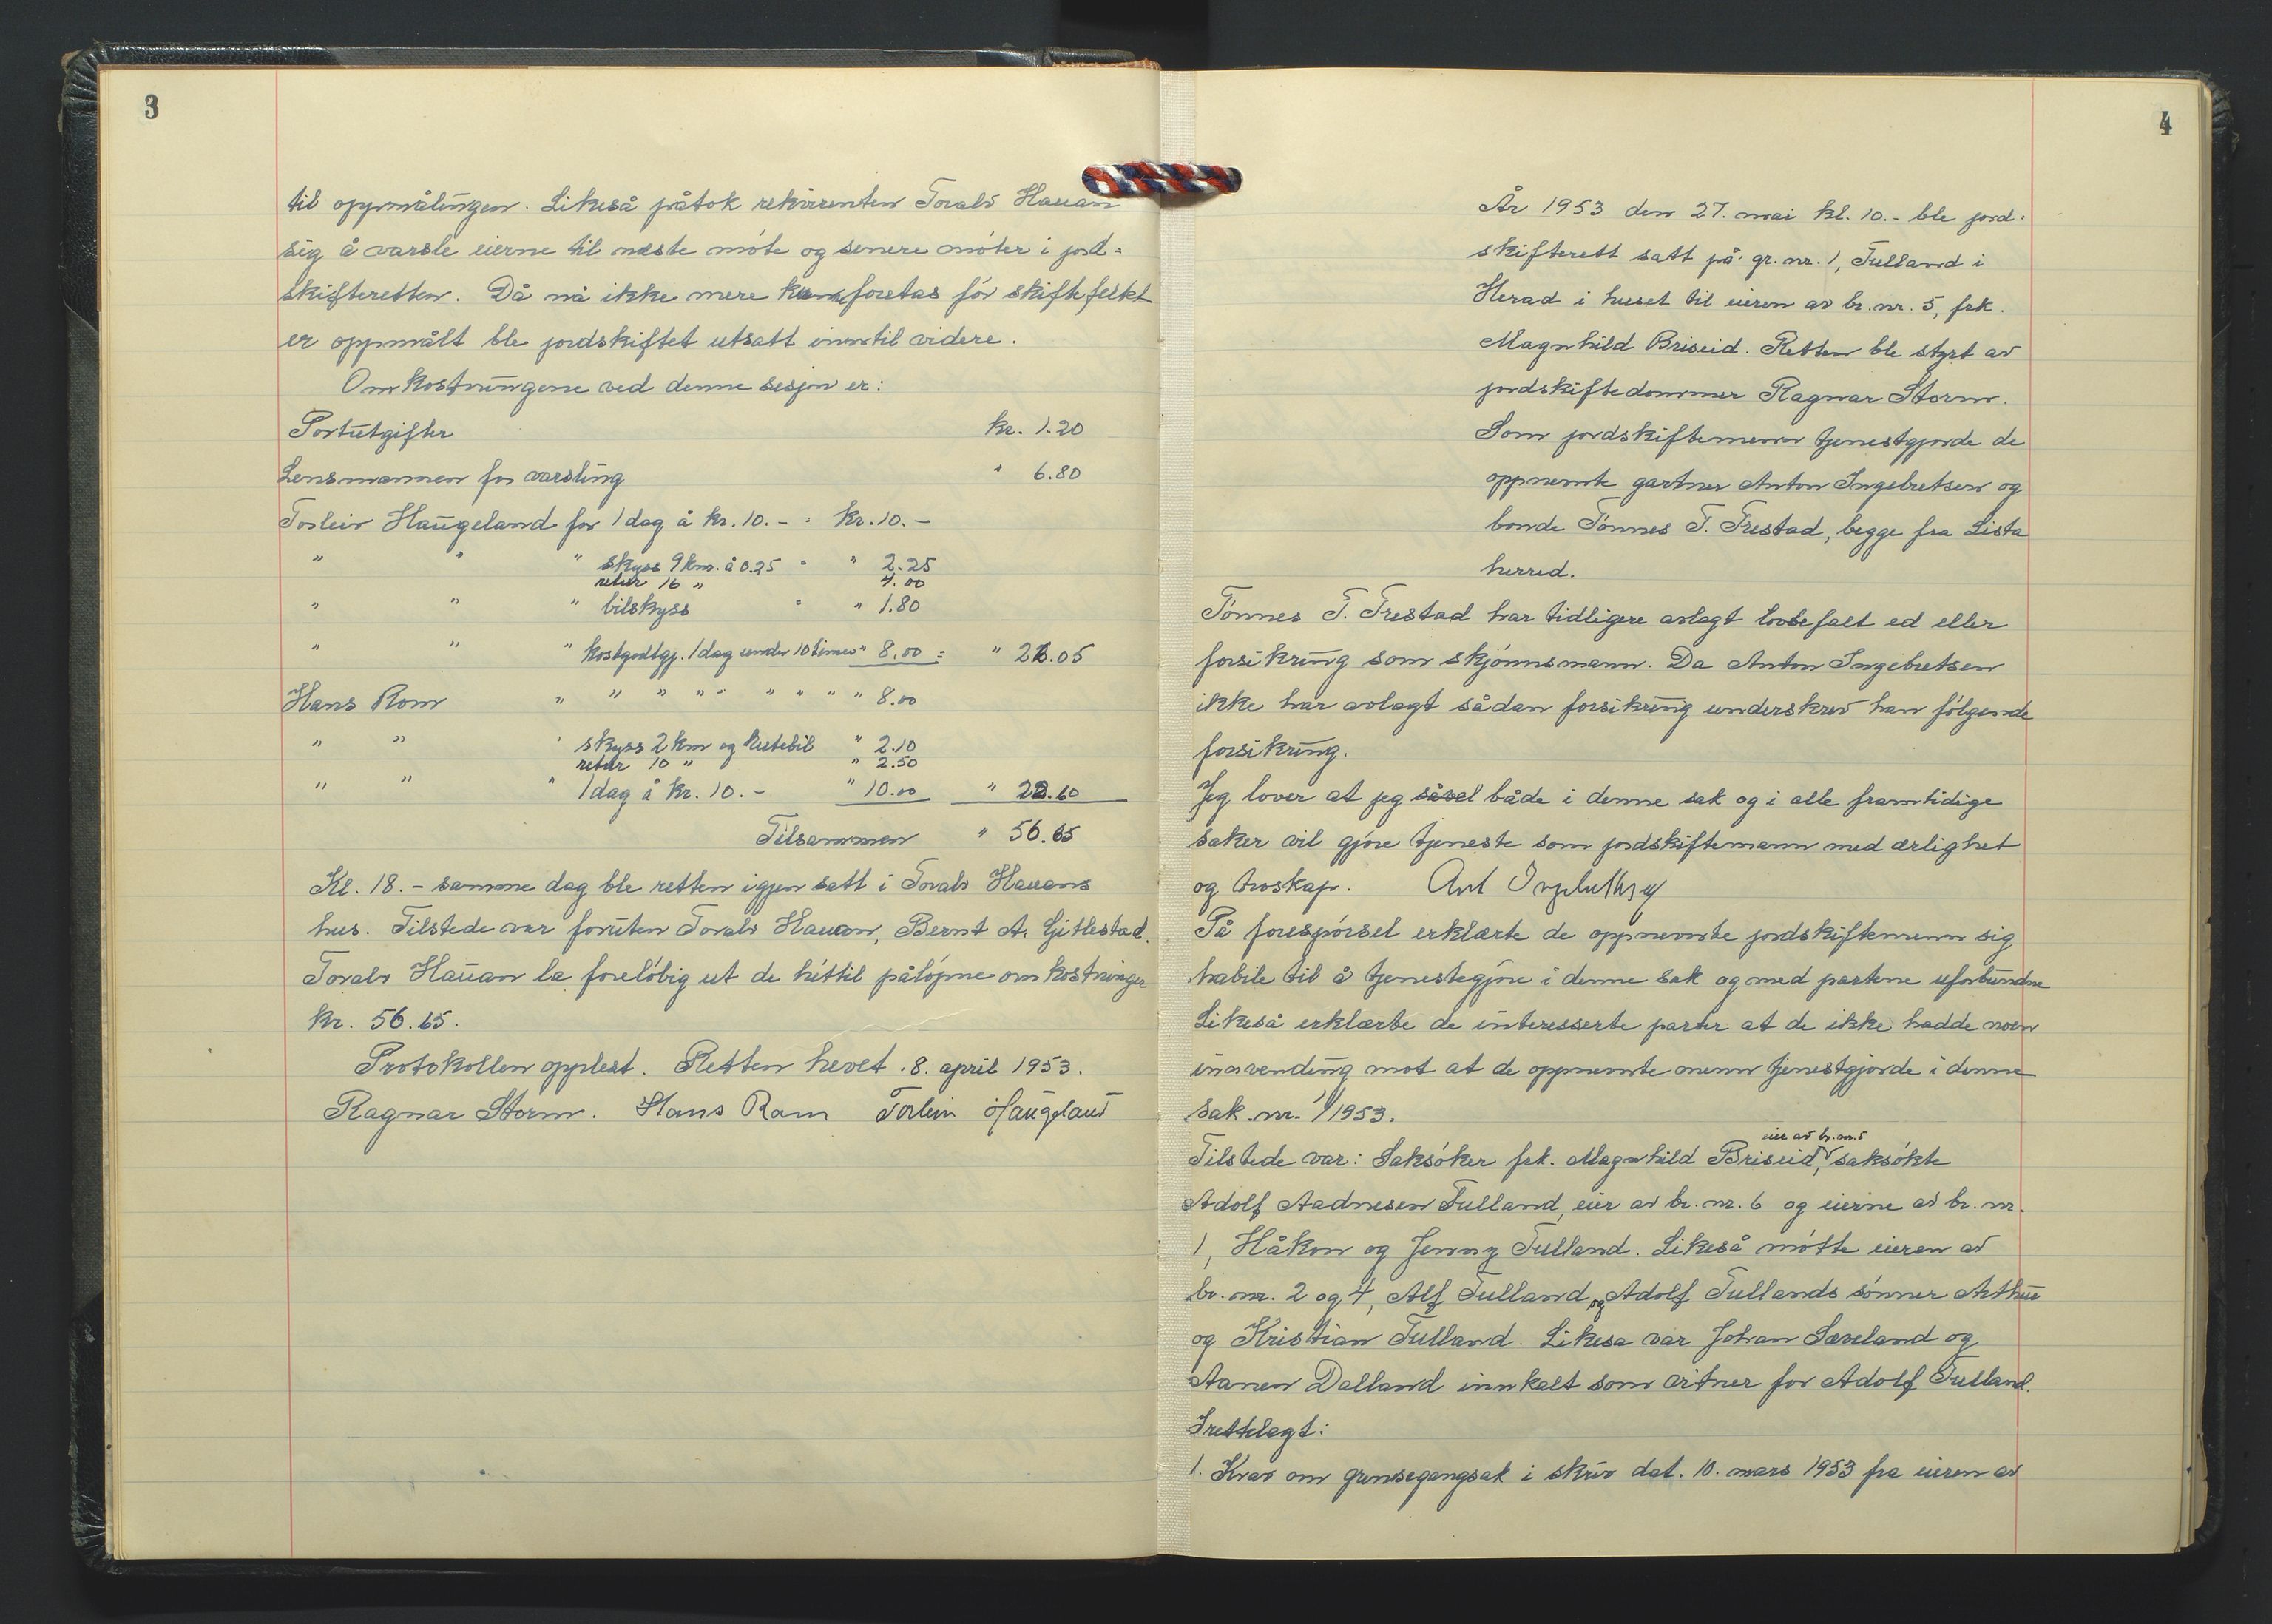 3
til oppmålingen. Likeså påtok rekvirenten Toralv Hauan
sig å varsle eierne til næste møte og senere møter i jord-
skifteretten. Då nå ikke mere kunne foretas før skiftefeltet
er oppmålt ble jordskiftet utsatt inntil videre.
Omkostningene ved denne sesjon er:
Portutgifter kr. 1.20
Lensmannen for varsling " 6.80
Torleiv Haugeland for 1 dag å kr. 10.- = kr. 10.-
" " " skyss 9 km. å 0.25 = " 2.25
retur 16 " 4.00
" " " bilskyss = " 1.80
" " " kostgodtgj. 1 dag under 10 timer " 8.00 = " 26.05
Hans Rom " " " " " " " " " 8.00
" " " skyss 2 km og rutebil " 2.10
retur 10 " " 2.50
" " " 1 dag å kr. 10.- " 10.00 " 22.60
Tilsammen " 56.65
Kl. 18.- samme dag ble retten igjen satt i Toralv Hauans
hus. Tilstede var foruten Toralv Hauan, Bernt A. Gitlestad.
Toralv Hauan la foreløbig ut de hittil påløpne omkostninger
kr. 56.65.
Protokollen opplest. Retten hevet. 8. april 1953.
Ragnar Storm. Hans Rom Torleiv Haugeland
4
År 1953 den 27. mai kl. 10.- ble jord-
skifterett satt på gr. nr. 1, Tulland i
Herad i huset til eieren av br. nr. 5, frk.
Magnhild Briseid. Retten ble styrt av
jordskiftedommer Ragnar Storm.
Som jordskiftemenn tjenestgjorde de
oppnemte gartner Anton Ingebretsen og
bonde Tønnes T. Trestad, begge fra Lista
herred.
Tønnes T. Trestad har tidligere avlagt lovbefalt ed eller
forsikring som skjønnsmann. Da Anton Ingebretsen
ikke har avlagt sådan forsikring underskrev han følgende
forsikring.
Jeg lover at jeg såvel både i denne sak og i alle framtidige
saker vil gjøre tjeneste som jordskiftemann med ærlighet
og troskap. Ant Ingebretsen
På forespørsel erklærte de oppnevnte jordskiftemenn sig
habile til å tjenestegjøre i denne sak og med partene uforbundne
Likeså erklærte de interesserte parter at de ikke hadde noen
innvending mot at de oppnemte menn tjenestgjorde i denne
sak nr. 1/1953.
eier av br. nr. 5
Tilstede var: Saksøker frk. Magnhild Briseid, saksøkte
Adolf Aadnesen Tulland, eier av br. nr. 6 og eierne av br. nr.
1, Håkon og Jenny Tulland. Likeså møtte eieren av
br. nr. 2 og 4, Alf Tulland, og Adolf Tullands sønner Arthur
og Kristian Tulland. Likesa var Johan Sæveland og
Aanen Dalland innkalt som vitner for Adolf Tulland.
Irettelagt:
1. Krav om grensegangsak i skriv dat. 10. mars 1953 fra eieren av